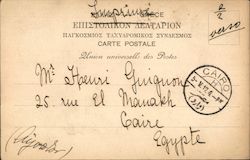 Imprimé
GRÈCE
ΕΠΙΣΤΟΛΙΚΟΝ ΔΕΛΤΑΡΙΟΝ
ΠΑΓΚΟΣΜΙΟΣ ΤΑΧΥΔΡΟΜΙΚΟΣ ΣΥΝΔΕΣΜΟΣ
CARTE POSTALE
Union universelle des Postes
verso
Mr Henri Guignon
25 rue El Manakh
Caire
Egypte
CAIRO